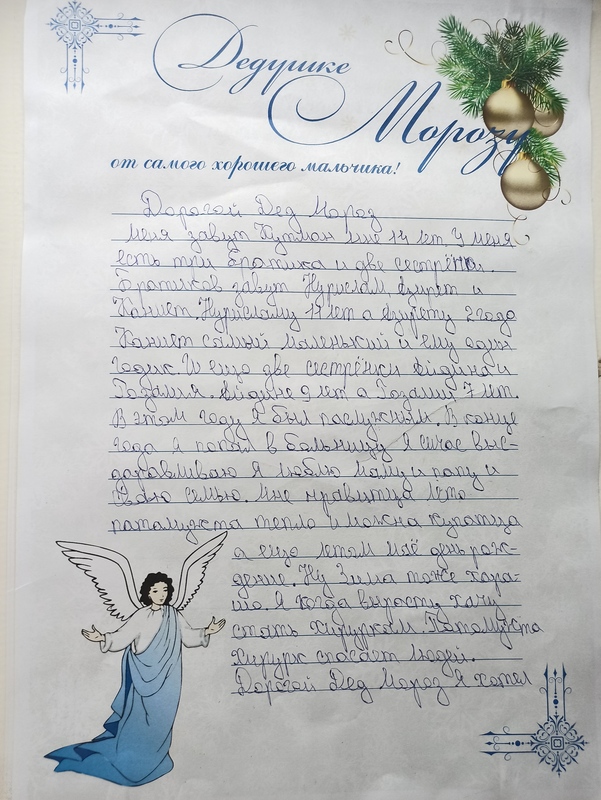 Дедушке
Морозу
от самого хорошего мальчика!
Дорогой Дед Мороз
Меня завут Тутман мне 14 лет. У меня
есть три братика и две сестрёнки.
Братиков завут Нурислам Азирет и
Каншет. Нурисламу 11 лет а Азирету 2 года
Каншет самый маленький и ему один
годик. И ещо две сестрёнки Айдина и
Розалия. Айдине 9 лет а Розалии 7 лет.
В этом году я был паслужным. В конце
года я попал в больницу я сичас выс-
даравливаю я люблю маму и папу и
сваю семью. Мне нравитца лето
патамушта тепло и можна купатца
а ещо летом маё день рож-
дение. Ну Зима тоже хара-
шо. Я когда вырасту хачу
стать хирурком. Патамушта
Хирурк спасает людей.
Дорогой Дед Мороз я хотел